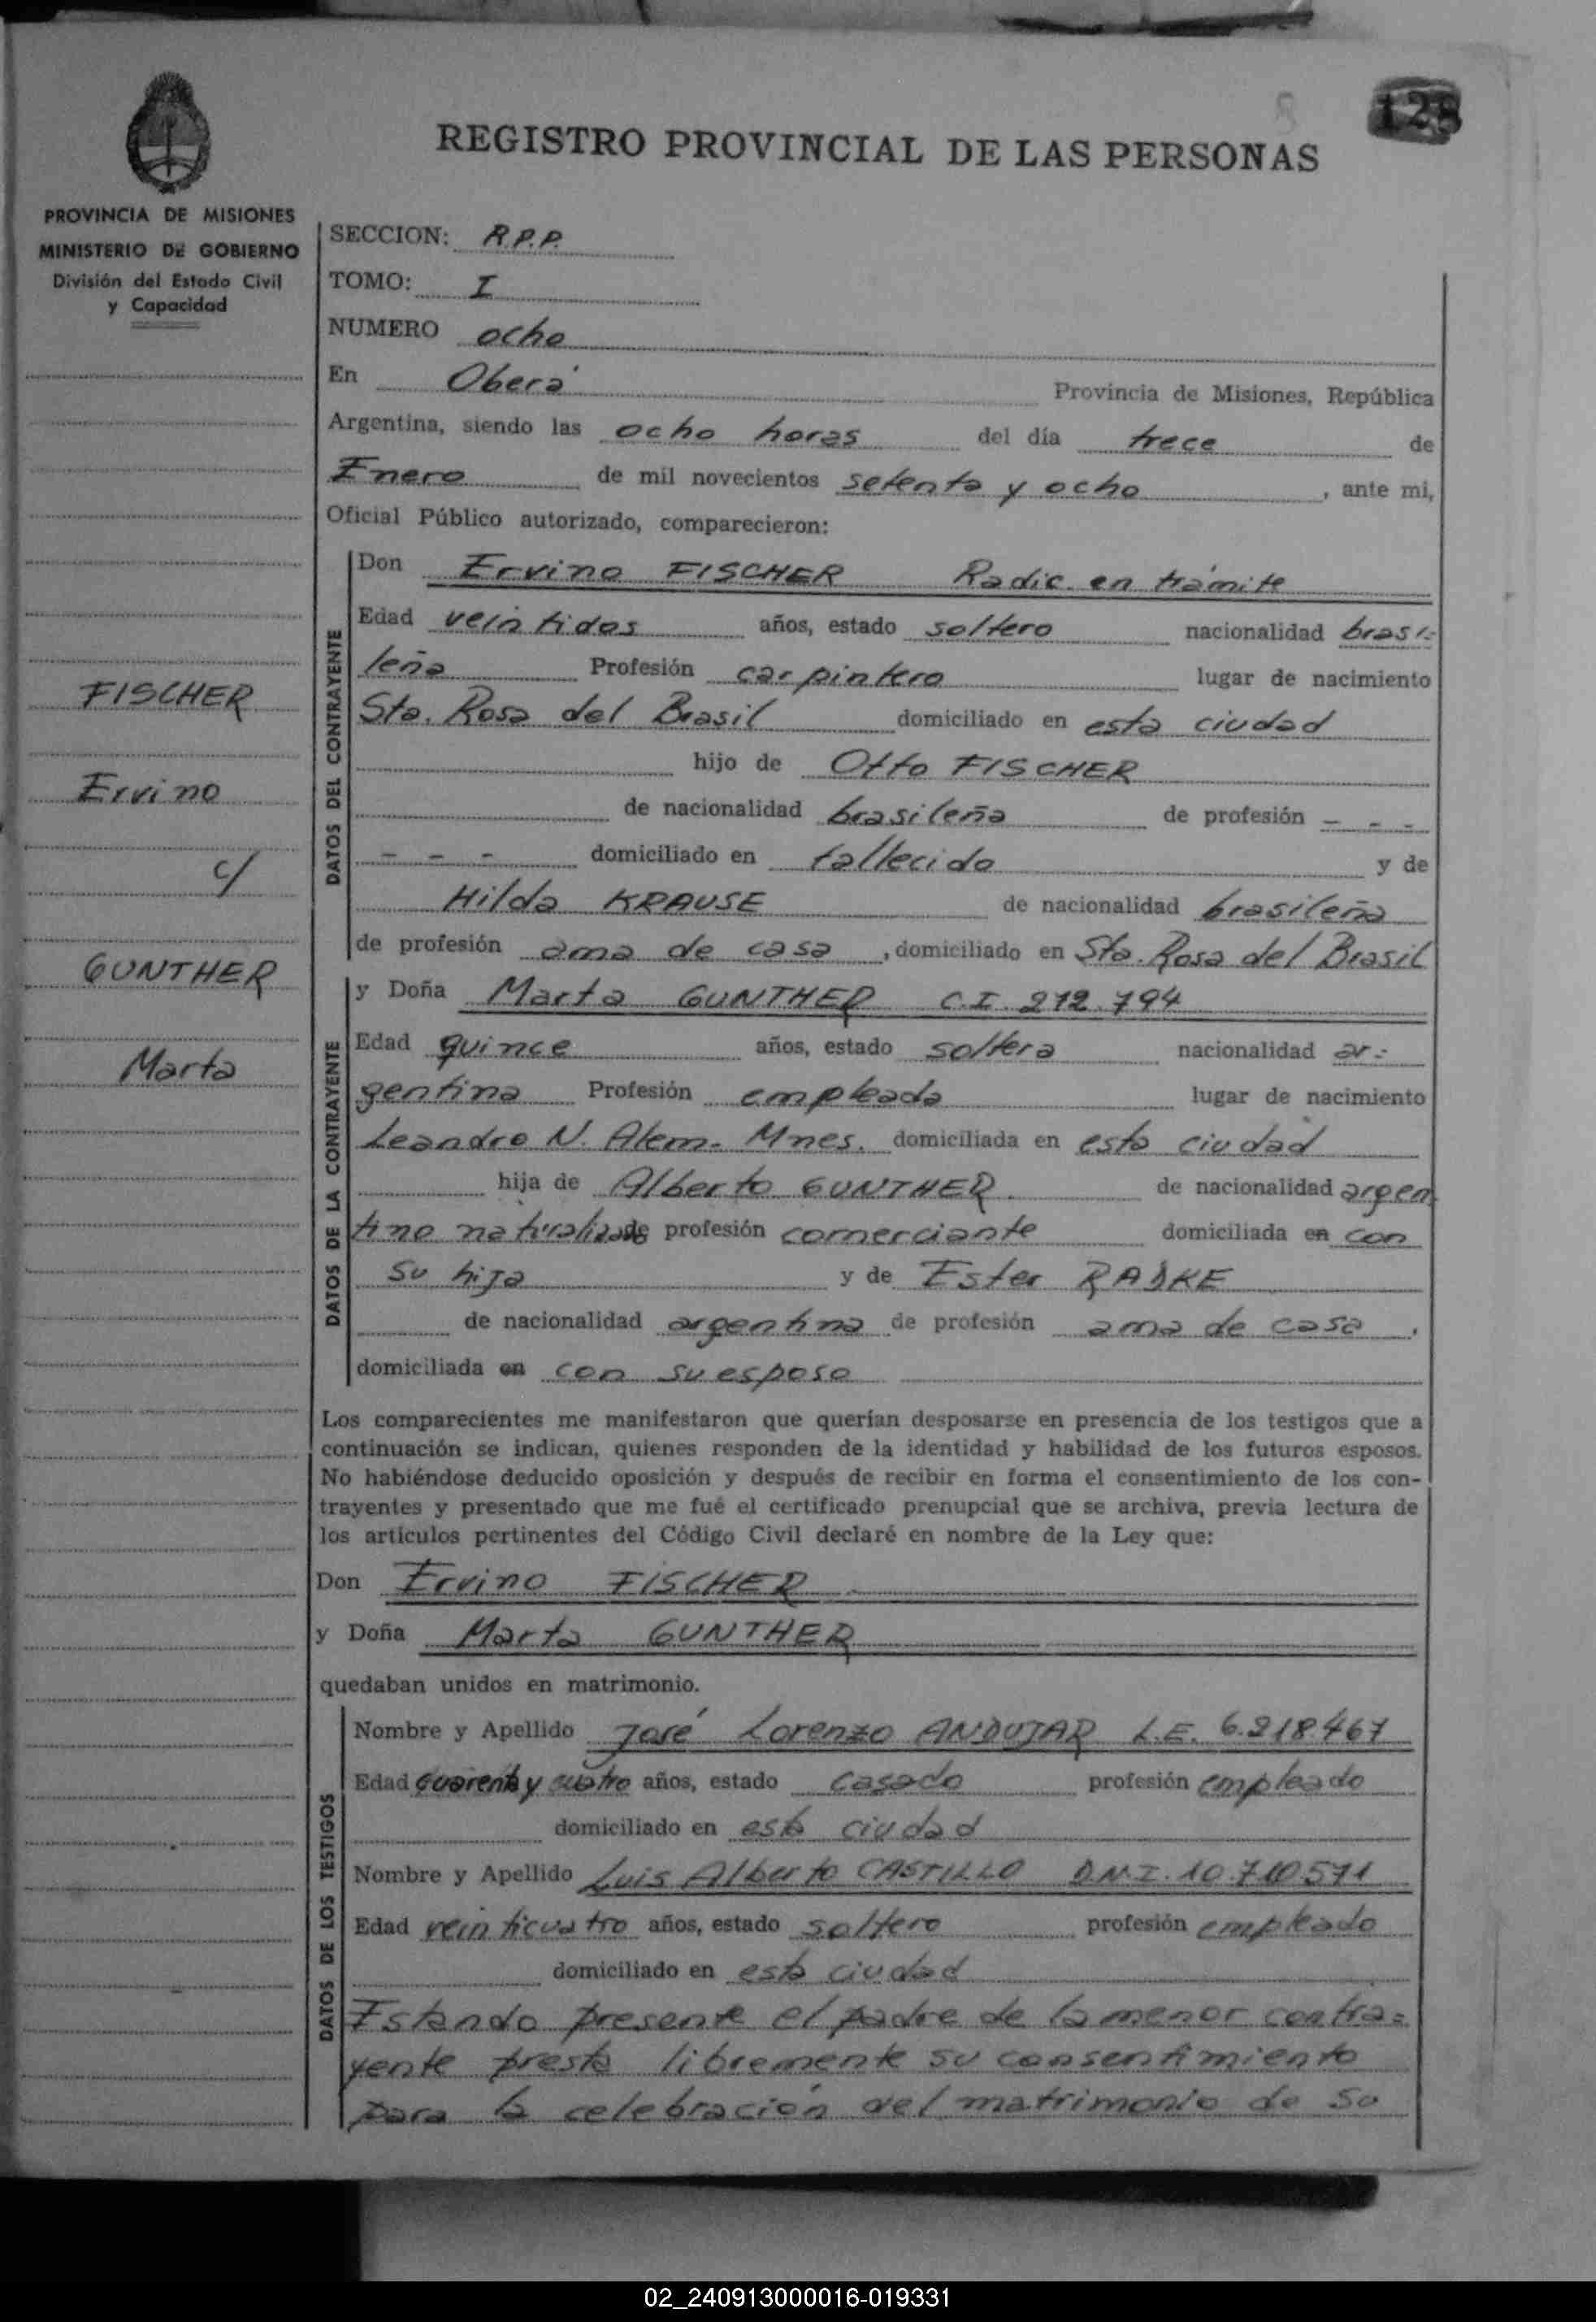 128
8
REGISTRO PROVINCIAL DE LAS PERSONAS
PROVINCIA DE MISIONES
MINISTERIO DE GOBIERNO
División del Estado Civil
y Capacidad
FISCHER
Ervino
c/
GUNTHER
Marta
SECCION: R.P.P.
TOMO: I
NUMERO ocho
En Oberá Provincia de Misiones, República
Argentina, siendo las ocho horas del día trece de
Enero de mil novecientos setenta y ocho, ante mi,
Oficial Público autorizado, comparecieron:
DATOS DEL CONTRAYENTE
Don Ervino FISCHER Radic. en trámite
Edad veintidos años, estado soltero nacionalidad brasi-
leña Profesión carpintero lugar de nacimiento
Sta. Rosa del Brasil domiciliado en esta ciudad
hijo de Otto FISCHER
de nacionalidad brasileña de profesión - - -
- - - domiciliado en fallecido y de
Hilda KRAUSE de nacionalidad brasileña
de profesión ama de casa, domiciliado en Sta. Rosa del Brasil
DATOS DE LA CONTRAYENTE
y Doña Marta GUNTHER C.I. 212.794
Edad quince años, estado soltera nacionalidad ar=
gentina Profesión empleada lugar de nacimiento
Leandro N. Alem- Mnes. domiciliada en esta ciudad
hija de Alberto GUNTHER. de nacionalidad argen
tino naturalizado profesión comerciante domiciliada en con
su hija y de Ester RADKE
de nacionalidad argentina de profesión ama de casa,
domiciliada en con su esposo
Los comparecientes me manifestaron que querían desposarse en presencia de los testigos que a
continuación se indican, quienes responden de la identidad y habilidad de los futuros esposos.
No habiéndose deducido oposición y después de recibir en forma el consentimiento de los con-
trayentes y presentado que me fué el certificado prenupcial que se archiva, previa lectura de
los artículos pertinentes del Código Civil declaré en nombre de la Ley que:
Don Ervino FISCHER
y Doña Marta GUNTHER
quedaban unidos en matrimonio.
DATOS DE LOS TESTIGOS
Nombre y Apellido José Lorenzo ANDUJAR L.E. 6.218.467
Edad cuarenta y cuatro años, estado casado profesión empleado
domiciliado en esta ciudad
Nombre y Apellido Luis Alberto CASTILLO D.N.I. 10.710.571
Edad veinticuatro años, estado soltero profesión empleado
domiciliado en esta ciudad
Estando presente el padre de la menor contra=
yente presta libremente su consentimiento
para la celebración del matrimonio de su
02_240913000016-019331